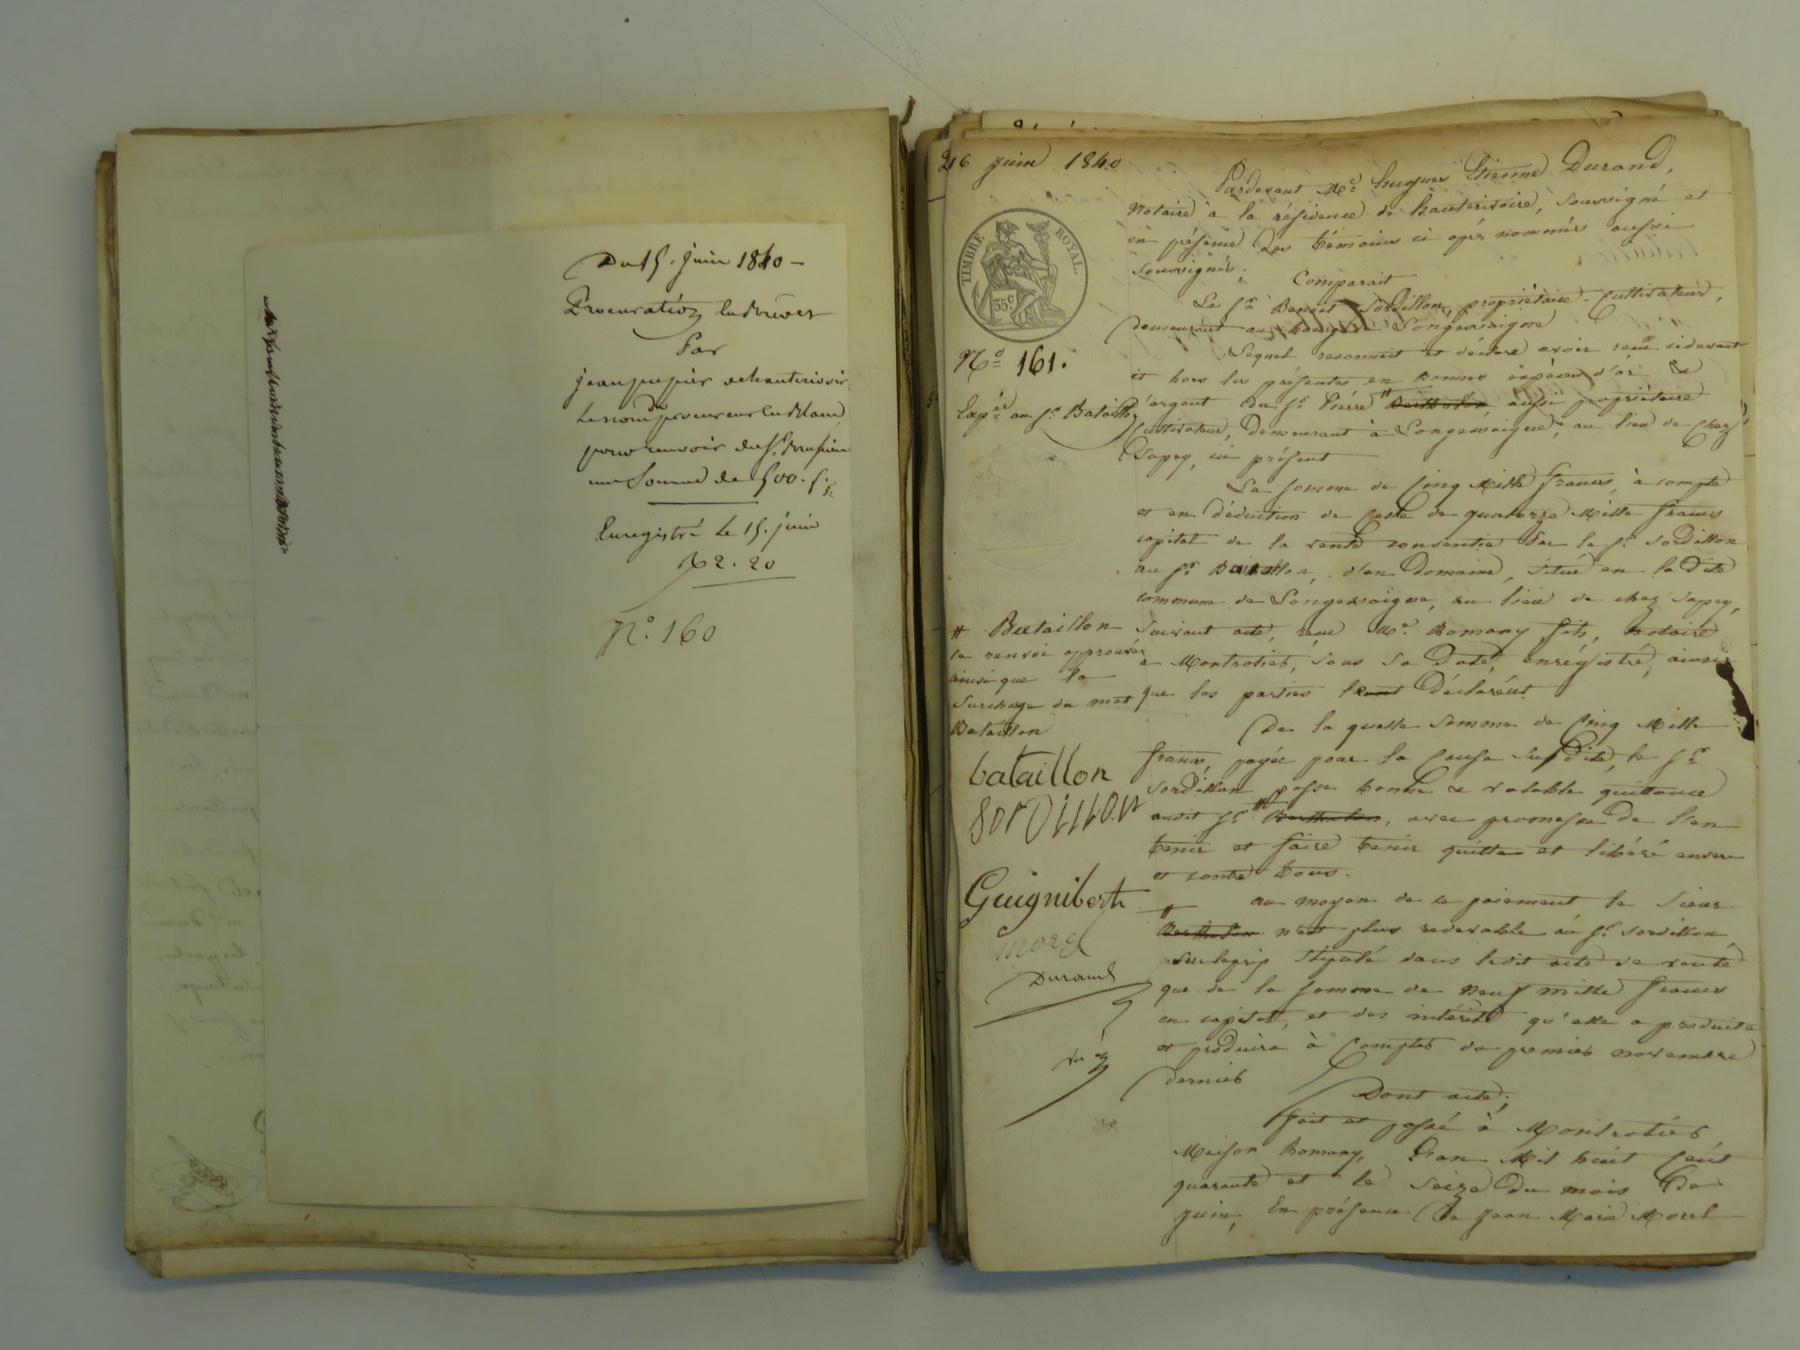 Du 15. Juin 1840 –
Procuration en Brevet
Par
jean pupier de hauterivoir
Le nom du procureur en Blanc
pour recevoir du Sr.
une Somme de 500. f.
Enregistré le 15. juin
2.20
N.º 160
16 juin 1840
TIMBRE ROYAL.
35 c.
Nº 161.
Expée au Sr. Bataillon
# Bataillon
le renvoi approuvé
ainsi que la
Surcharge du mot
Bataillon
bataillon
SOrDILLON
Guignibert
morel
Durand
Pardevant Me. hugues Etienne Durand,
Notaire à la résidence de hauterivoire, soussigné et
en présence des témoins ci après nommés aussi
soussignés.
Comparait
Le Sr. Benoit Sordillon, propriétaire-Cultivateur,
demeurant au Longessaigne
Lequel reconnait et déclare avoir reçu cidevant
et hors les présentes en bonnes espèces d'or &
d'argent du Sr. Pierre # Bertholon aussi propriétaire
Cultivateur, Demeurant à Longessaigne, au lieu de Chez
Sapey, ici présent
La somme de Cinq Mille francs, à compte
et en déduction de celle de quatorze Mille francs
capital de la vente consentie par le Sr. Sordillon
au Sr. Bataillon, d'un Domaine, situé en la dite
commune de Longessaigne, au lieu de chez Sapey,
Suivant acte, reçu Me. Romany fils, notaire
à Montrotier, sous sa date, enrégistré, ainsi
que les parties l'ont déclaré
De la quelle somme de Cinq Mille
francs, payée pour la Cause susdite, le Sr.
Sordillon passe bonne & valable quittance
audit Sr. # Bertholon, avec promesse de l'en
tenir et faire tenir quitte et libéré envers
et contre tous.
au moyen de ce paiement le Sieur
# Bertholon n'est plus redevable au Sr. Sordillon
sur le prix stipulé dans ledit acte de vente
que de la somme de Neuf mille francs
en capital, et des intérêts qu'elle a produits
et produira à Compter du premier novembre
dernier
Dont acte;
fait et passé à Montrotier
Maison Romany, L'an Mil huit Cent
quarante et le Seize du mois de
juin, En présence de Jean Marie Morel